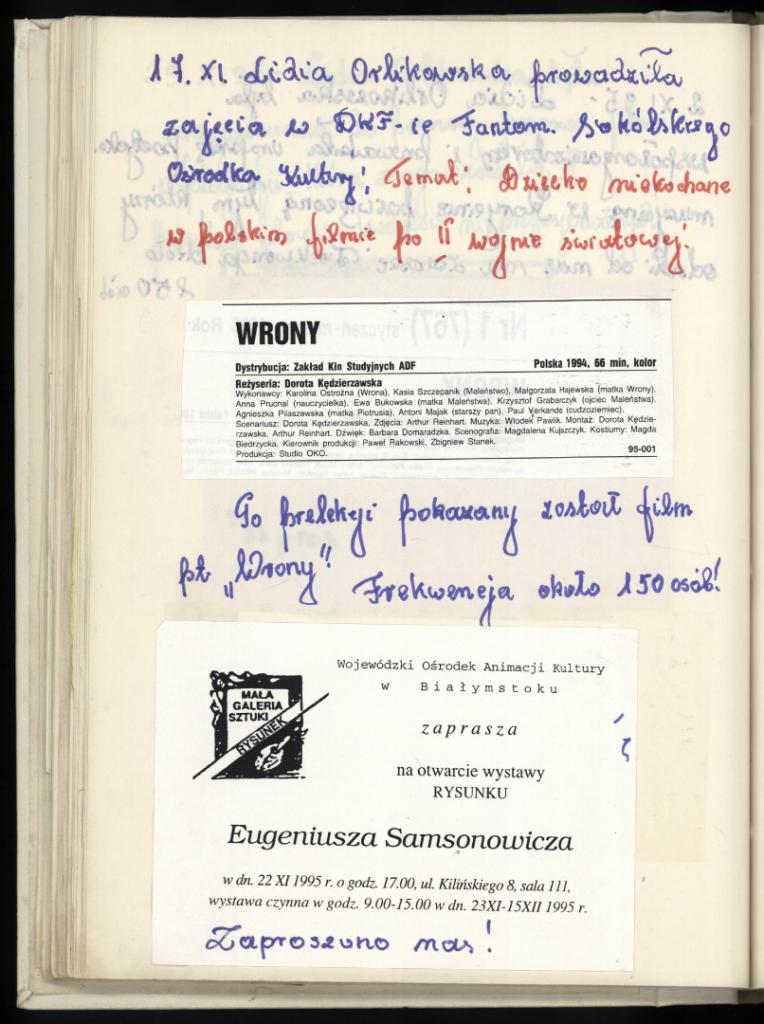 17. XI. Lidia Orlikowska prowadziła
zajęcia w DKF-ie Fantom. Sokólskiego
Ośrodka Kultury! Temat: Dziecko niekochane
w polskim filmie po II wojnie światowej!
WRONY
Dystrybucja: Zakład Kin Studyjnych ADF Polska 1994, 66 min, kolor
Reżyseria: Dorota Kędzierzawska
Wykonawcy: Karolina Ostrożna (Wrona), Kasia Szczepanik (Maleństwo), Małgorzata Hajewska (matka Wrony),
Anna Prucnal (nauczycielka), Ewa Bukowska (matka Maleństwa), Krzysztof Grabarczyk (ojciec Maleństwa),
Agnieszka Pilaszewska (matka Piotrusia), Antoni Majak (starszy pan), Paul Verkande (cudzoziemiec).
Scenariusz: Dorota Kędzierzawska, Zdjęcia: Arthur Reinhart. Muzyka: Włodek Pawlik. Montaż: Dorota Kędzie-
rzawska, Arthur Reinhart. Dźwięk: Barbara Domaradzka. Scenografia: Magdalena Kujszczyk. Kostiumy: Magda
Biedrzycka. Kierownik produkcji: Paweł Rakowski, Zbigniew Stanek.
Produkcja: Studio OKO. 95-001
Po prelekcji pokazany został film
pt „Wrony"!
Frekwencja około 150 osób!
Wojewódzki Ośrodek Animacji Kultury
w Białymstoku
MAŁA
GALERIA
SZTUKI
RYSUNEK
zaprasza
na otwarcie wystawy
RYSUNKU
Eugeniusza Samsonowicza
w dn. 22 XI 1995 r. o godz. 17.00, ul. Kilińskiego 8, sala 111,
wystawa czynna w godz. 9.00-15.00 w dn. 23XI-15XII 1995 r.
Zaproszono nas!